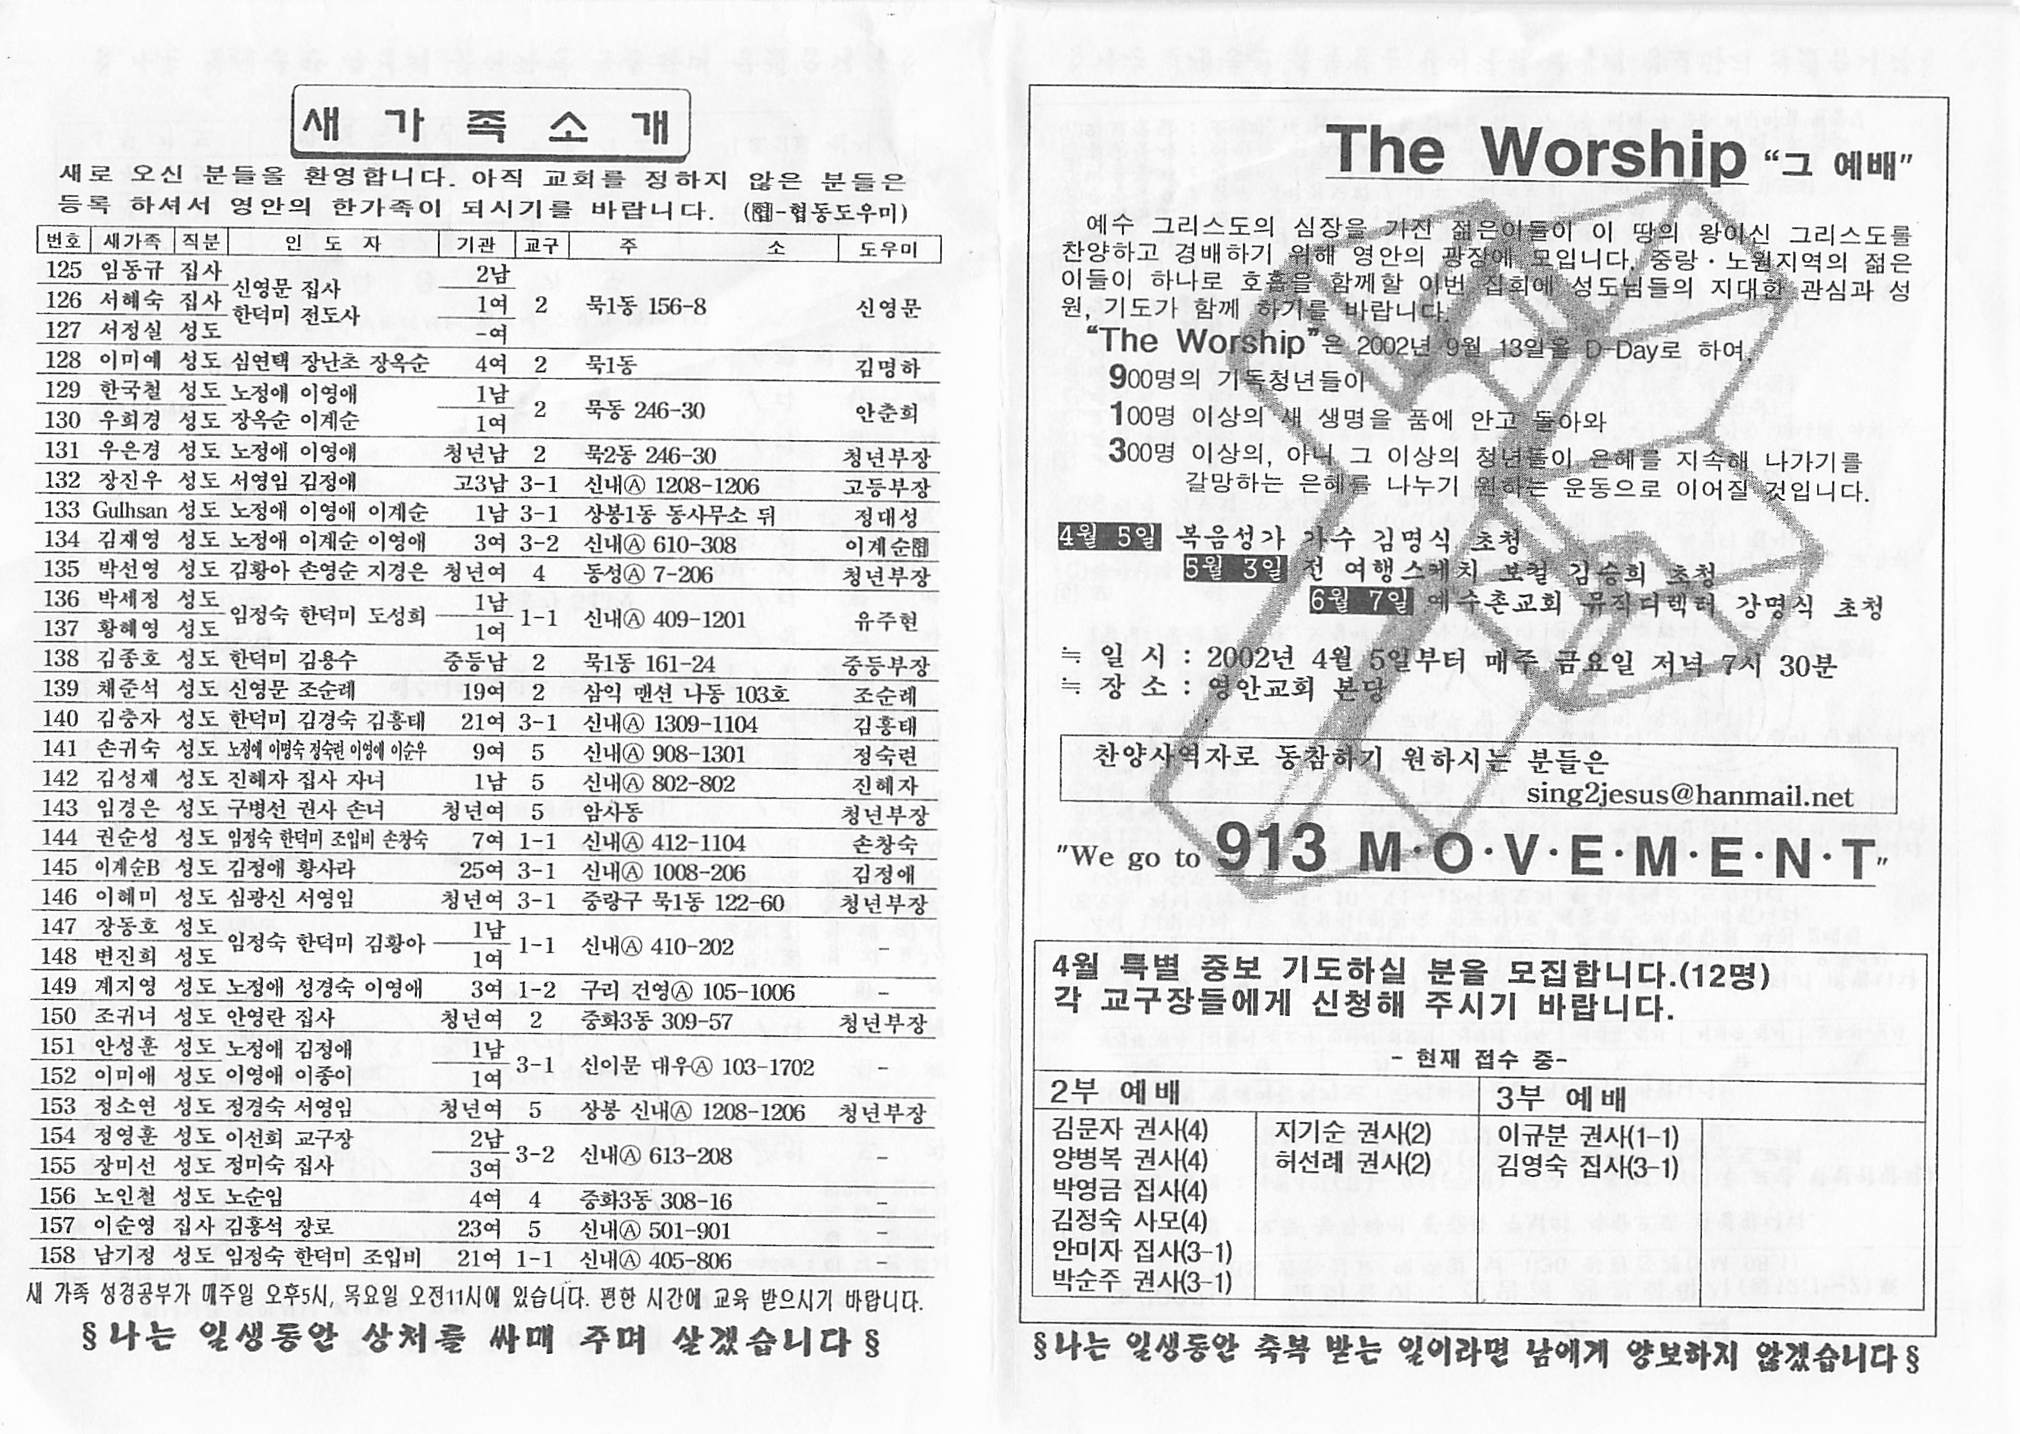 새 가 족 소 개
새로 오신 분들을 환영합니다. 아직 교회를 정하지 않은 분들은
등록 하셔서 영안의 한가족이 되시기를 바랍니다. (협-협동도우미)
번호 새가족 직분 인 도 자 기관 교구 주 소 도우미
125 임동규 집사 신영문 집사 2남 2 묵1동 156-8 신영문
126 서혜숙 집사 한덕미 전도사 1여
127 서정실 성도 -여
128 이미예 성도 심연택 장난초 장옥순 4여 2 묵1동 김명하
129 한국철 성도 노정애 이영애 1남 2 묵동 246-30 안춘희
130 우희경 성도 장옥순 이계순 1여
131 우은경 성도 노정애 이영애 청년남 2 묵2동 246-30 청년부장
132 장진우 성도 서영임 김정애 고3남 3-1 신내Ⓐ 1208-1206 고등부장
133 Gulhsan 성도 노정애 이영애 이계순 1남 3-1 상봉1동 동사무소 뒤 정대성
134 김재영 성도 노정애 이계순 이영애 3여 3-2 신내Ⓐ 610-308 이계순협
135 박선영 성도 김황아 손영순 지경은 청년여 4 동성Ⓐ 7-206 청년부장
136 박세정 성도 임정숙 한덕미 도성희 1남 1-1 신내Ⓐ 409-1201 유주현
137 황혜영 성도 1여
138 김종호 성도 한덕미 김용수 중등남 2 묵1동 161-24 중등부장
139 채준석 성도 신영문 조순례 19여 2 삼익 맨션 나동 103호 조순례
140 김충자 성도 한덕미 김경숙 김홍태 21여 3-1 신내Ⓐ 1309-1104 김홍태
141 손귀숙 성도 노정애 이명숙 정숙련 이영애 이순우 9여 5 신내Ⓐ 908-1301 정숙련
142 김성재 성도 진혜자 집사 자녀 1남 5 신내Ⓐ 802-802 진혜자
143 임경은 성도 구병선 권사 손녀 청년여 5 암사동 청년부장
144 권순성 성도 임정숙 한덕미 조입비 손창숙 7여 1-1 신내Ⓐ 412-1104 손창숙
145 이계순B 성도 김정애 황사라 25여 3-1 신내Ⓐ 1008-206 김정애
146 이혜미 성도 심광신 서영임 청년여 3-1 중랑구 묵1동 122-60 청년부장
147 장동호 성도 임정숙 한덕미 김황아 1남 1-1 신내Ⓐ 410-202 -
148 변진희 성도 1여
149 제지영 성도 노정애 성경숙 이영애 3여 1-2 구리 건영Ⓐ 105-1006 -
150 조귀녀 성도 안영란 집사 청년여 2 중화3동 309-57 청년부장
151 안성훈 성도 노정애 김정애 1남 3-1 신이문 대우Ⓐ 103-1702
152 이미애 성도 이영애 이종이 1여
153 정소연 성도 정경숙 서영임 청년여 5 상봉 신내Ⓐ 1208-1206 청년부장
154 정영훈 성도 이선희 교구장 2남 3-2 신내Ⓐ 613-208 -
155 장미선 성도 정미숙 집사 3여
156 노인철 성도 노순임 4여 4 중화3동 308-16 -
157 이순영 집사 김홍석 장로 23여 5 신내Ⓐ 501-901 -
158 남기정 성도 임정숙 한덕미 조입비 21여 1-1 신내Ⓐ 405-806 -
새 가족 성경공부가 매주일 오후5시, 목요일 오전11시에 있습니다. 편한 시간에 교육 받으시기 바랍니다.
§나는 일생동안 상처를 싸매 주며 살겠습니다§
The Worship “그 예배”
예수 그리스도의 심장을 가진 젊은이들이 이 땅의 왕이신 그리스도를
찬양하고 경배하기 위해 영안의 광장에 모입니다. 중랑·노원지역의 젊은
이들이 하나로 호흡을 함께할 이번 집회에 성도님들의 지대한 관심과 성
원, 기도가 함께 하기를 바랍니다.
“The Worship”은 2002년 9월 13일을 D-Day로 하여,
900명의 기독청년들이
100명 이상의 새 생명을 품에 안고 돌아와
300명 이상의, 아니 그 이상의 청년들이 은혜를 지속해 나가기를
갈망하는 은혜를 나누기 원하는 운동으로 이어질 것입니다.
4월 5일 복음성가 가수 김명식 초청
5월 3일 전 여행스케치 보컬 김승희 초청
6월 7일 예수촌교회 뮤직디렉터 강명식 초청
≒ 일 시 : 2002년 4월 5일부터 매주 금요일 저녁 7시 30분
≒ 장 소 : 영안교회 본당
찬양사역자로 동참하기 원하시는 분들은
sing2jesus@hanmail.net
"We go to 913 M·O·V·E·M·E·N·T"
4월 특별 중보 기도하실 분을 모집합니다.(12명)
각 교구장들에게 신청해 주시기 바랍니다.
- 현재 접수 중-
2부 예배 3부 예배
김문자 권사(4) 지기순 권사(2) 이규분 권사(1-1)
양병복 권사(4) 허선례 권사(2) 김영숙 집사(3-1)
박영금 집사(4)
김정숙 사모(4)
안미자 집사(3-1)
박순주 권사(3-1)
§나는 일생동안 축복 받는 일이라면 남에게 양보하지 않겠습니다§